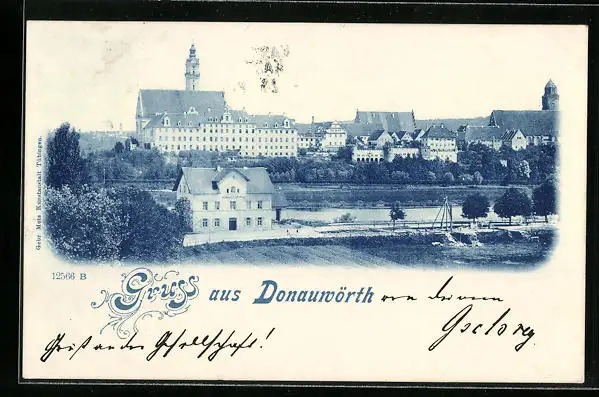 Gebr. Metz Kunstanstalt Tübingen.
12566 B
Gruss aus Donauwörth von deinem
Gruß an die Gesellschaft!